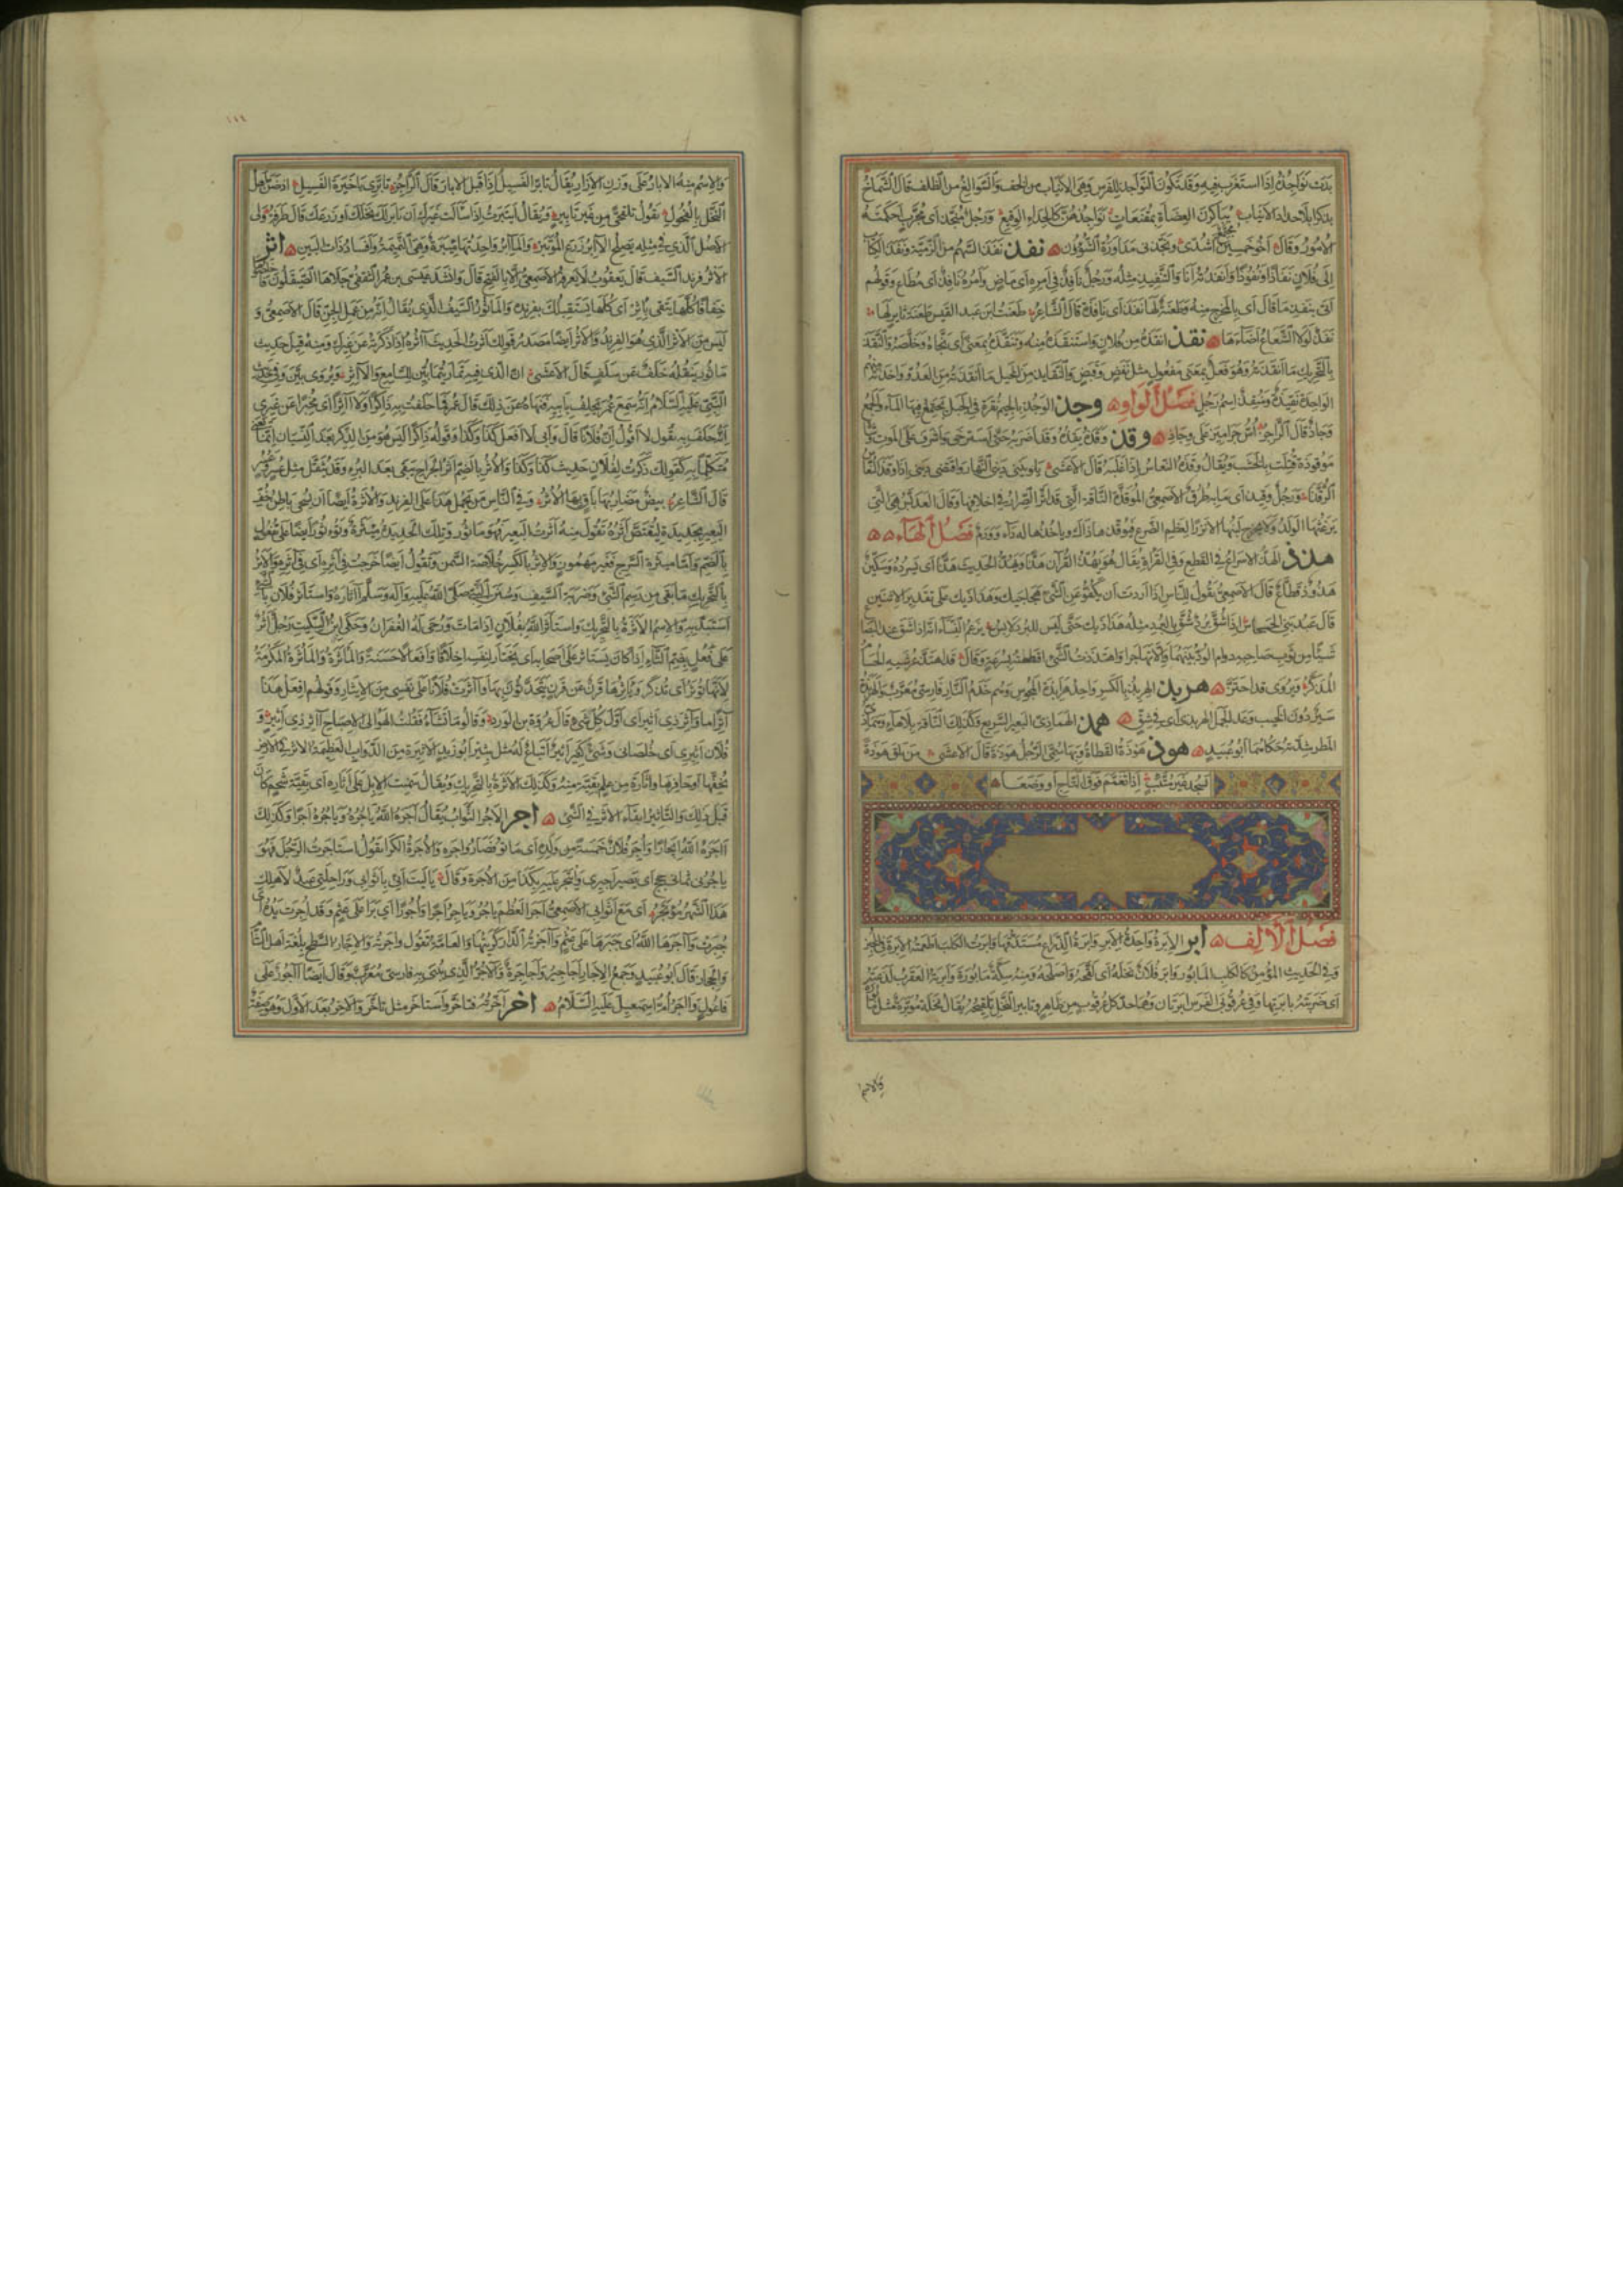 بدت نواجذه إذا استغرب فيه وقد تكون النواجذ للفرس وهي الأنياب من الخف والسوالغ من الظلف قال الشماخ
يباكرن العضاه بمقنعات نواجذهن كالحدإ الوقيع ورجل منجذ أي مجرب أحكمته
الأمور وقال أخو خمسين مجتمع أشدي ونجذني مداورة الشؤون نفذ نفذ السهم من الرمية ونفذ الكتاب
إلى فلان نفاذا ونفوذا وأنفذته أنا والتنفيذ مثله ورجل نافذ في أمره أي ماض وأمره نافذ أي مطاع وقولهم
أتى بنفذ ما قال أي بالمخرج منه وطعنة لها نفذ أي نافذة قال الشاعر طعنت ابن عبد القيس طعنة ثائر لها
نفذ لولا الشعاع أضاءها نقذ أنقذه من فلان واستنقذه منه وتنقذه بمعنى أي نجاه وخلصه والنقذ
بالتحريك ما أنقذته وهو فعل بمعنى مفعول مثل نفض وقبض والنقايذ من الخيل ما أنقذته من العدو وأخذته منهم
الواحدة نقيذة ومنقذ اسم رجل فصل الواو وجذ الوجذ بالجيم نقرة في الجبل يجتمع فيها الماء والجمع
وجاذ قال الراجز أس جراميز على وجاذ وقذ وقذه يقذه وقذا ضربه حتى استرخى وأشرف على الموت وشاة
موقوذة قتلت بالخشب ويقال وقذه النعاس إذا غلبه قال الأعشى يلوينني ديني النهار وأقتضي ديني إذا وقذ النعاس
الرقدا ورجل وقيذ أي ما به طرق الأصمعي الموقذة الناقة التي قد أثر الصرار في أخلافها وقال العدبس هي التي
يرغثها الولد ولا يخرج لبنها إلا نزرا لعظم الضرع فيوقذها ذلك ويأخذها له داء وورم فصل الهاء
هذذ الهذ الإسراع في القطع وفي القراءة يقال هو يهذ القرآن هذا ويهذ الحديث هذا أي يسرده وسكين
هذوذ قطاع قال الأصمعي تقول للناس إذا أردت أن يكفوا عن الشيء هجاجيك وهذاذيك على تقدير الاثنين
قال عبد بني الحسحاس إذا شق برد شق بالبرد مثله هذاذيك حتى ليس للبرد لابس يزعم النساء أنه إذا شق عند البضاع
شيئا من ثوب صاحبه دام الود بينهما وإلا تهاجرا واهتذذت الشيء اقتطعته بسرعة وقال قد اهتذ عرشيه الحسام
المذكر ويروى قد احتز هربذ الهربذ بالكسر واحد هرابذة المجوس وهم خدم النار فارسي معرب والهربذة
سير دون الخبب وعدا الجمل الهربذى أي في شق همذ الهماذي البعير السريع وكذلك الناقة بلا هاء وهماذي
المطر شدته حكاهما أبو عبيد هوذ هوذة القطاة وبها سمي الرجل هوذة قال الأعشى من يلق هوذة
يسجد غير متئب إذا تعمم فوق التاج أو وضعا
فصل الألف أبر الإبرة واحدة الإبر وإبرة الذراع مستدقها وأبرت الكلب أطعمته الإبرة في الخبز
وفي الحديث المؤمن كالكلب المأبور وأبر فلان نخله أي لقحه وأصلحه ومنه سكة مأبورة وأبرته العقرب لدغته
أي ضربته بإبرتها وفي عرقوبي الفرس إبرتان وهما حد كل عرقوب من ظاهر وتأبير النخل تلقيحه يقال نخلة مؤبرة مثل مأبورة
والاسم
والاسم منه الإبار على وزن الإزار يقال تأبر الفسيل إذا قبل الإبار قال الراجز تأبري يا خيرة الفسيل إذ ضن أهل
النخل بالفحول يقول تلقحي من غير تأبير ويقال ائتبرت إذا سألت غيرك أن يأبر لك نخلك أو زرعك قال طرفة ولي
الأصل الذي في مثله يصلح الآبر زرع المؤتبر والمآبر واحدتها مئبرة وهي النميمة وإفساد ذات البين أثر
الأثر فرند السيف قال يعقوب لا يعرفه الأصمعي إلا بالفتح قال وأنشد عيسى بن عمر الثقفي جلاها الصيقلون فأخلصوها
خفافا كلها يتقي بأثر أي كلها يستقبلك بفرنده والمأثور السيف الذي يقال إنه من عمل الجن قال الأصمعي و
ليس من الأثر الذي هو الفرند والأثر أيضا مصدر قولك أثرت الحديث آثره إذا ذكرته عن غيرك ومنه قيل حديث
مأثور ينقله خلف عن سلف قال الأعشى إن الذي فيه تماريتما بين للسامع والآثر ويروى بين وفي حديث
النبي عليه السلام أنه سمع عمر يحلف بأبيه فنهاه عن ذلك قال عمر فما حلفت به ذاكرا ولا آثرا أي مخبرا عن غيري
أنه حلف به يقول لا أقول إن فلانا قال وأبي لا أفعل كذا وكذا وقوله ذاكرا ليس هو من الذكر بعد النسيان إنما
متكلما به كقولك ذكرت لفلان حديث كذا وكذا والأثر بالضم أثر الجراح يبقى بعد البرء وقد يثقل مثل عسر وعسر
قال الشاعر بيض مضاربها باق بها الأثر وفي الناس من يحمل هذا على الفرند والأثرة أيضا أن يسحى باطن خف
البعير بحديدة ليقتص أثره تقول منه أثرت البعير فهو مأثور وتلك الحديدة مئثرة وتؤثور أيضا على تفعول
بالضم وأما ميثرة السرج فغير مهموز والإثر بالكسر خلاصة السمن وتقول أيضا خرجت في إثره أي في أثره والأثر
بالتحريك ما بقي من رسم الشيء وضربة السيف وسنن النبي صلى الله عليه وآله وسلم آثاره واستأثر فلان بالشيء
استبد به والاسم الأثرة بالتحريك واستأثر الله بفلان إذا مات ورجي له الغفران وحكى ابن السكيت رجل أثر
على فعل بضم الثاء إذا كان يستأثر على أصحابه أي يختار لنفسه أخلاقا وأفعالا حسنة والمأثرة والمأثرة المكرمة
لأنها تؤثر أي تذكر ويأثرها قرن عن قرن يتحدثون بها وآثرت فلانا على نفسي من الإيثار وقولهم افعل هذا
آثرا ما وآثر ذي أثير أي أول كل شيء قال عروة بن الورد وقالوا ما تشاء فقلت ألهو إلى الإصباح آثر ذي أثير و
فلان أثيري أي خلصاني وشيء كثير أثير إتباع له مثل بثير أبو زيد الأثيرة من الدواب العظيمة الأثر في الأرض
بخفها أو حافرها وأثارة من علم بقية منه وكذلك الأثرة بالتحريك ويقال سمنت الإبل على أثارة أي بقية شحم كان
قبل ذلك والتأثير إبقاء الأثر في الشيء أجر الأجر الثواب يقال آجره الله يأجره ويأجره أجرا وكذلك
آجره الله إيجارا وأجر فلان خمسة من ولده أي ماتوا فصاروا أجره والأجرة الكرا تقول استأجرت الرجل فهو
يأجرني ثماني حجج أي يصير أجيري وائتجر عليه بكذا من الأجرة وقال يا ليت أني بأثوابي وراحلتي عبد لأهلك
هذا الشهر مؤتجر أي مع أثوابي الأصمعي أجر العظم يأجر ويأجر أجرا وأجورا أي برأ على عثم وقد أجرت يده أي
جبرت وآجرها الله أي جبرها على عثم وآجرته الدار أكريتها والعامة تقول واجرته والإجار السطح بلغة أهل الشام
والحجاز قال أبو عبيد وجمع الإجار أجاجير وأجاجرة والآجر الذي يبنى به فارسي معرب وقال أيضا آجور على
فاعول والآجر أم إسمعيل عليه السلام أخر أخرته فتأخر واستأخر مثل تأخر والآخر بعد الأول وهو صفة